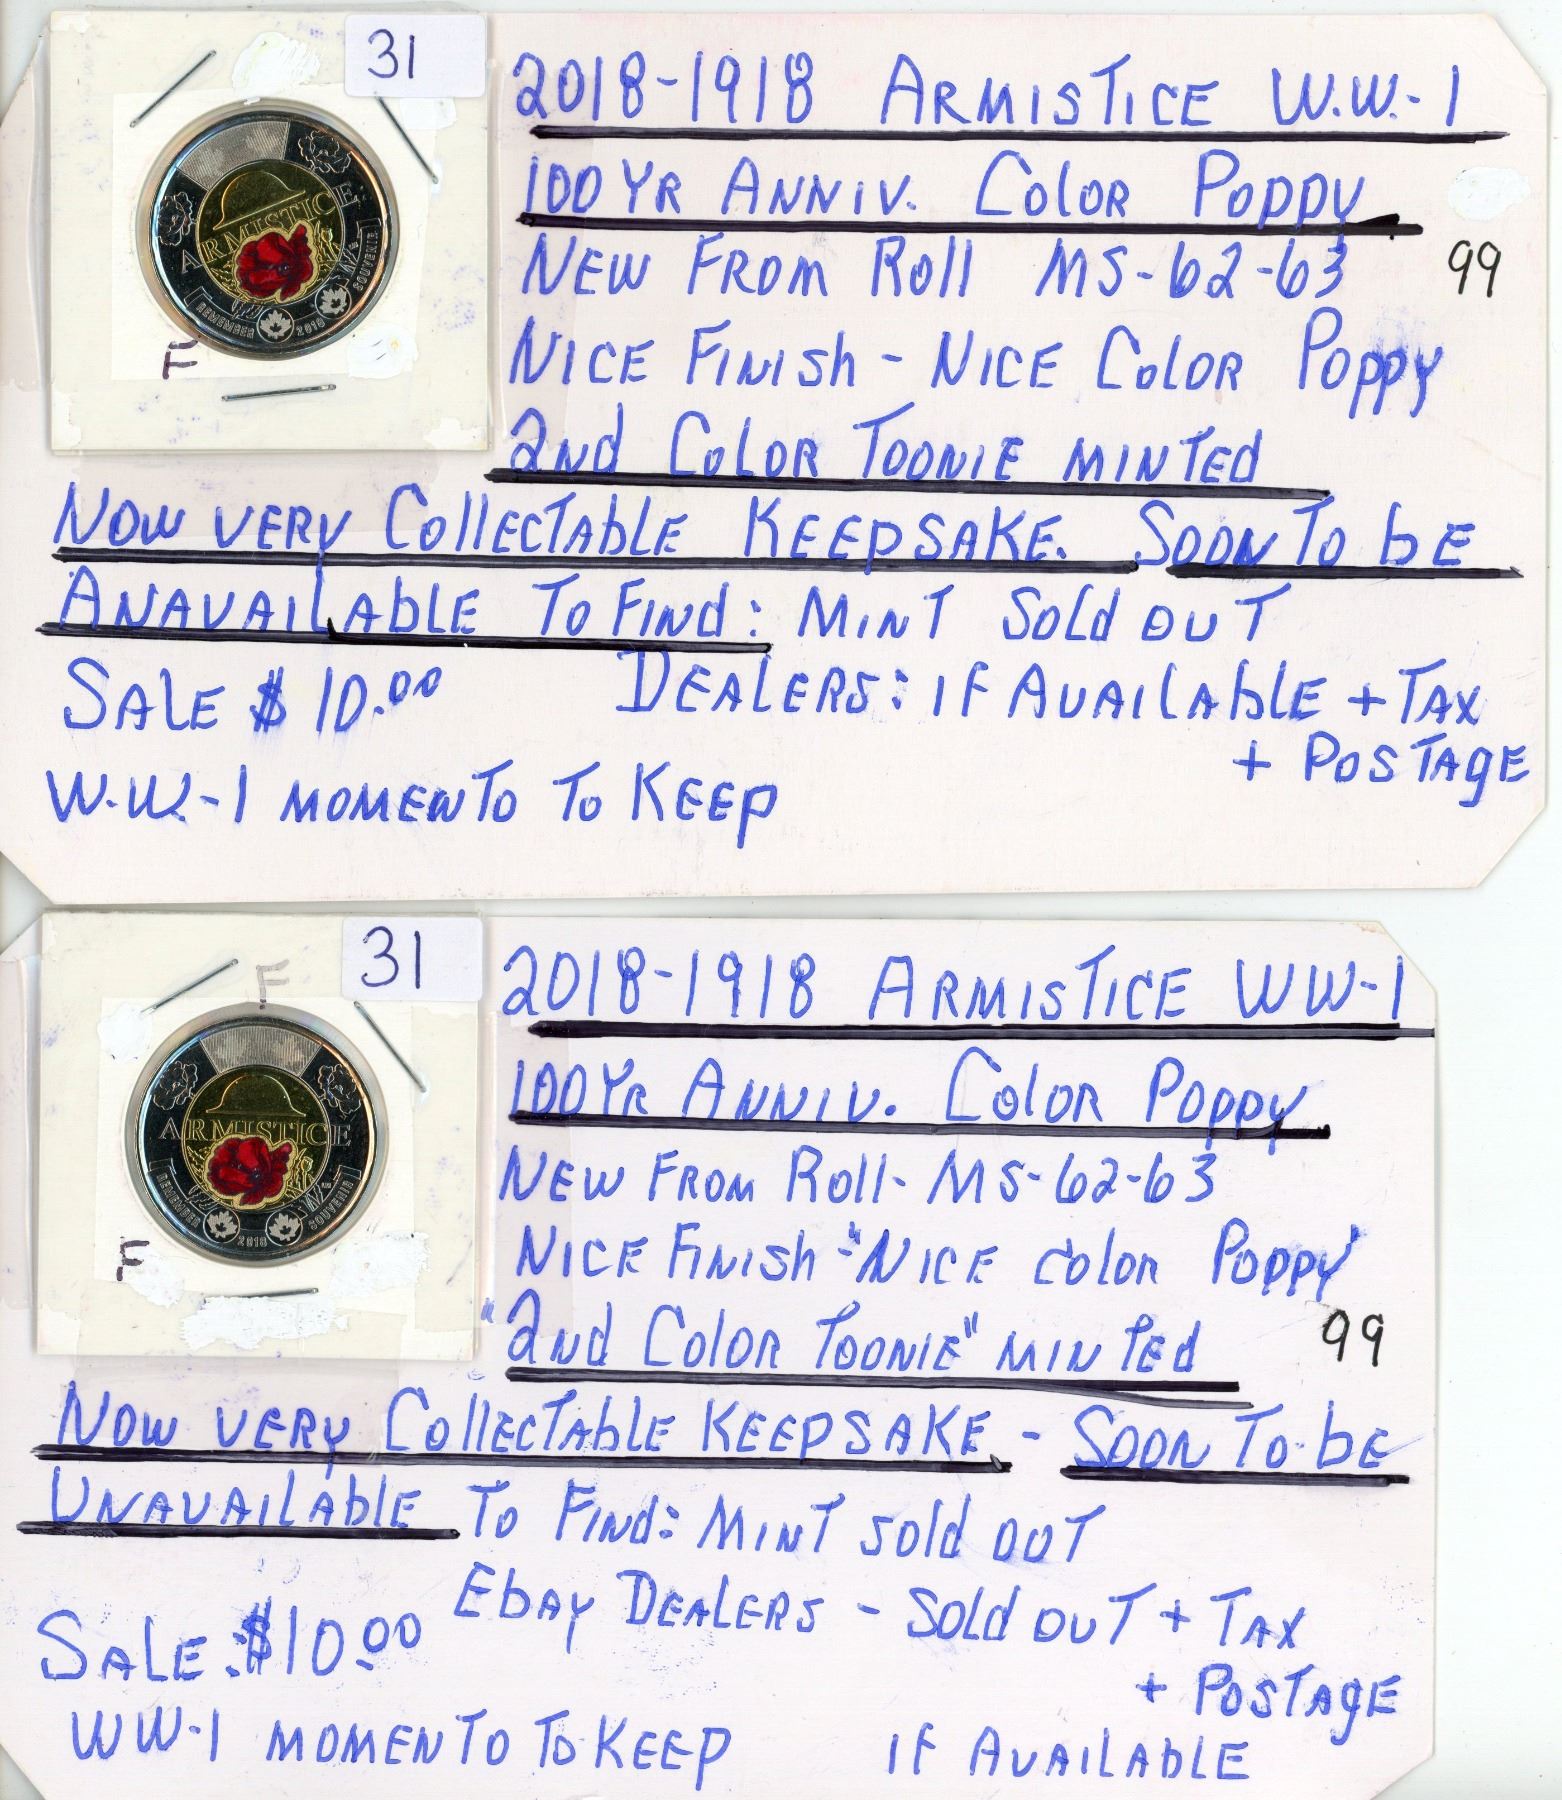 31
2018-1918 ARMISTICE W.W.-1
100 YR ANNIV. COLOR POPPY
NEW FROM ROLL MS-62-63
99
NICE FINISH - NICE COLOR POPPY
2ND COLOR TOONIE MINTED
NOW VERY COLLECTABLE KEEPSAKE. SOON TO BE
ANAVAILABLE TO FIND: MINT SOLD OUT
SALE $10.00 DEALERS: IF AVAILABLE + TAX
+ POSTAGE
W.W.-1 MOMENTO TO KEEP
ARMISTICE
REMEMBER
2018
SOUVENIR
F
31
F
2018-1918 ARMISTICE WW-1
100 YR ANNIV. COLOR POPPY
NEW FROM ROLL- MS-62-63
NICE FINISH -"NICE COLOR POPPY"
"2ND COLOR TOONIE" MINTED
99
NOW VERY COLLECTABLE KEEPSAKE. - SOON TO BE
UNAVAILABLE TO FIND: MINT SOLD OUT
EBAY DEALERS - SOLD OUT + TAX
SALE: $10.00
+ POSTAGE
WW-1 MOMENTO TO KEEP IF AVAILABLE
ARMISTICE
REMEMBER
2018
SOUVENIR
F